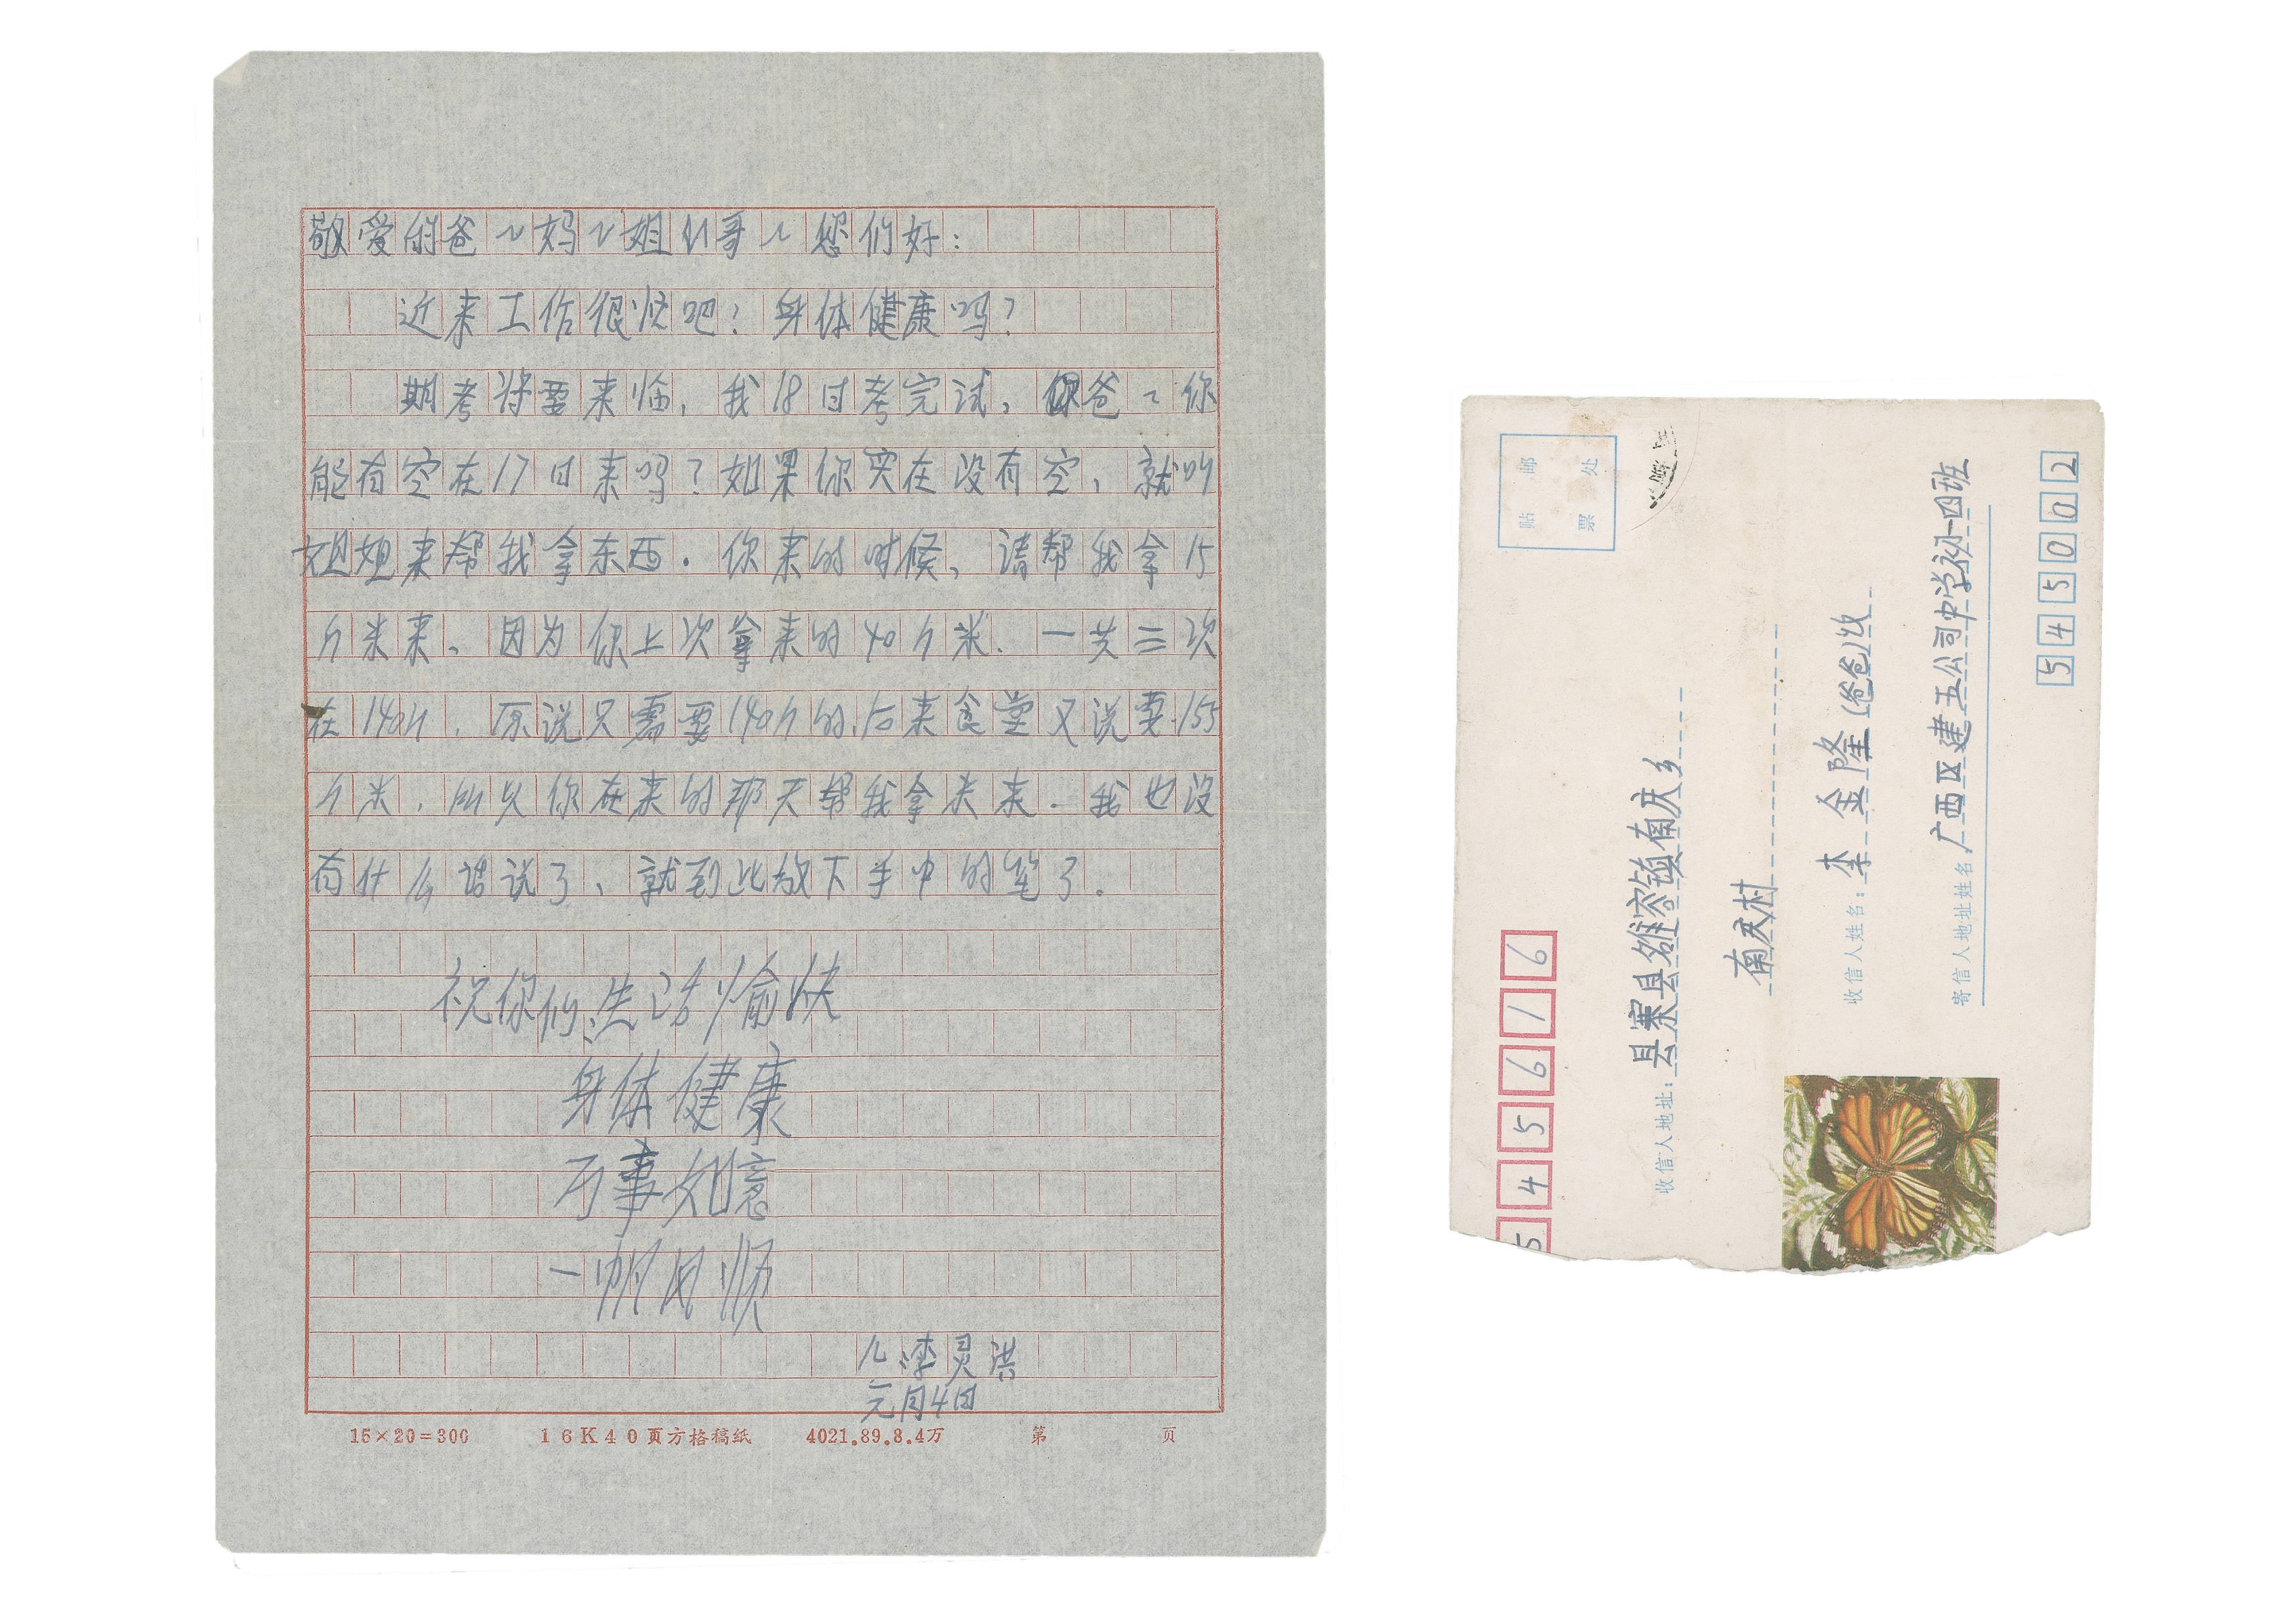 敬爱的爸〻妈〻姐〻哥〻您们好：
近来工作很忙吧！身体健康吗？
期考将要来临，我18日考完试，爸〻你
能有空在17日来吗？如果你实在没有空，就叫
姐姐来帮我拿东西．你来的时候，请帮我拿15
斤米来、因为你上次拿来的40斤米．一共三次
在140斤．原说只需要140斤的，后来食堂又说要155
斤米，所以你在来的那天帮我拿米来．我也没
有什么话说了、就到此放下手中的笔了．
祝你们：生活愉快
身体健康
万事如意
一帆风顺
儿：李灵洪
元月4日
15×20=300 16K40页方格稿纸 4021.89.8.4万 第 页
545616
贴邮票处
收信人地址：县寨县雒容镇南庆乡
南庆村
收信人姓名：李金隆（爸爸）收
寄信人地址姓名：广西区建五公司中学初一四班
545002